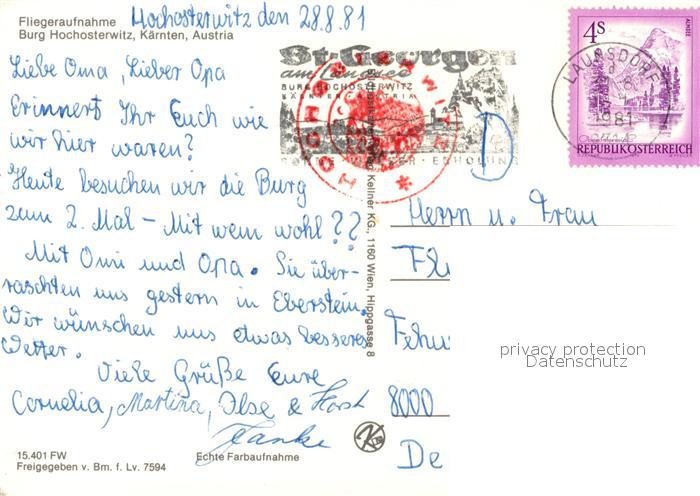 Hochosterwitz den 28.8.81
Fliegeraufnahme
Burg Hochosterwitz, Kärnten, Austria
Liebe Oma, Lieber Opa
Erinnert Ihr Euch wie
wir hier waren?
Heute besuchen wir die Burg
zum 2. Mal – Mit wem wohl??
Mit Omi und Opa. Sie über-
raschten uns gestern in Eberstein.
Wir wünschen uns etwas besseres
Wetter.
Viele Grüße Eure
Cornelia, Martina, Ilse & Horst
15.401 FW
Freigegeben v. Bm. f. Lv. 7594
Echte Farbaufnahme
St. Georgen
am Längsee
BURG HOCHOSTERWITZ
KÄRNTEN AUSTRIA
ERHOLUNG
HOCHOSTERWITZ
Kellner KG., 1160 Wien, Hippgasse 8
D
4S
ALMSEE
LAUNSDORF
1981
REPUBLIK ÖSTERREICH
Herrn u. Frau
8000
De
privacy protection
Datenschutz